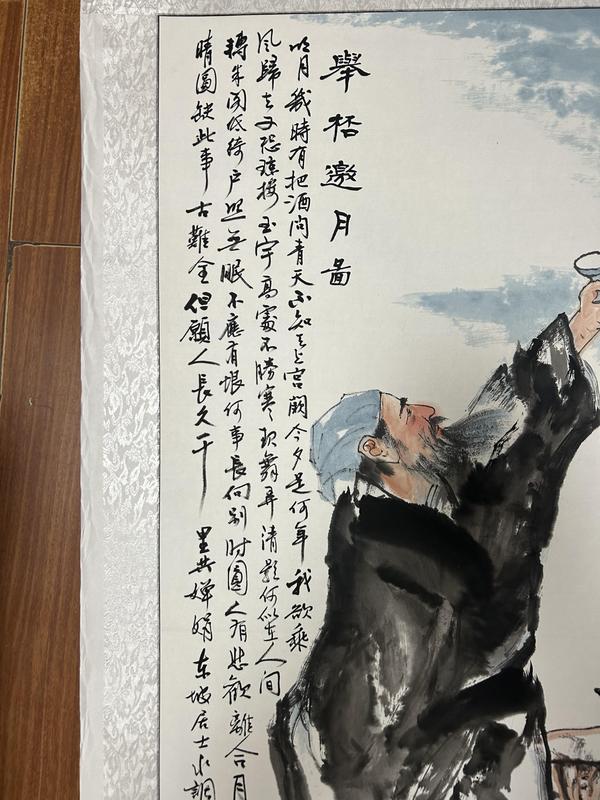 舉桮邀月啚
明月幾時有把酒問青天不知天上宮闕今夕是何年我欲乘
風歸去又恐瓊樓玉宇高處不勝寒起舞弄清影何似在人间
轉朱阁低綺户照无眠不應有恨何事長向别时圓人有悲歡離合月
晴圆缺此事古難全但願人長久千里共嬋娟东坡居士水調